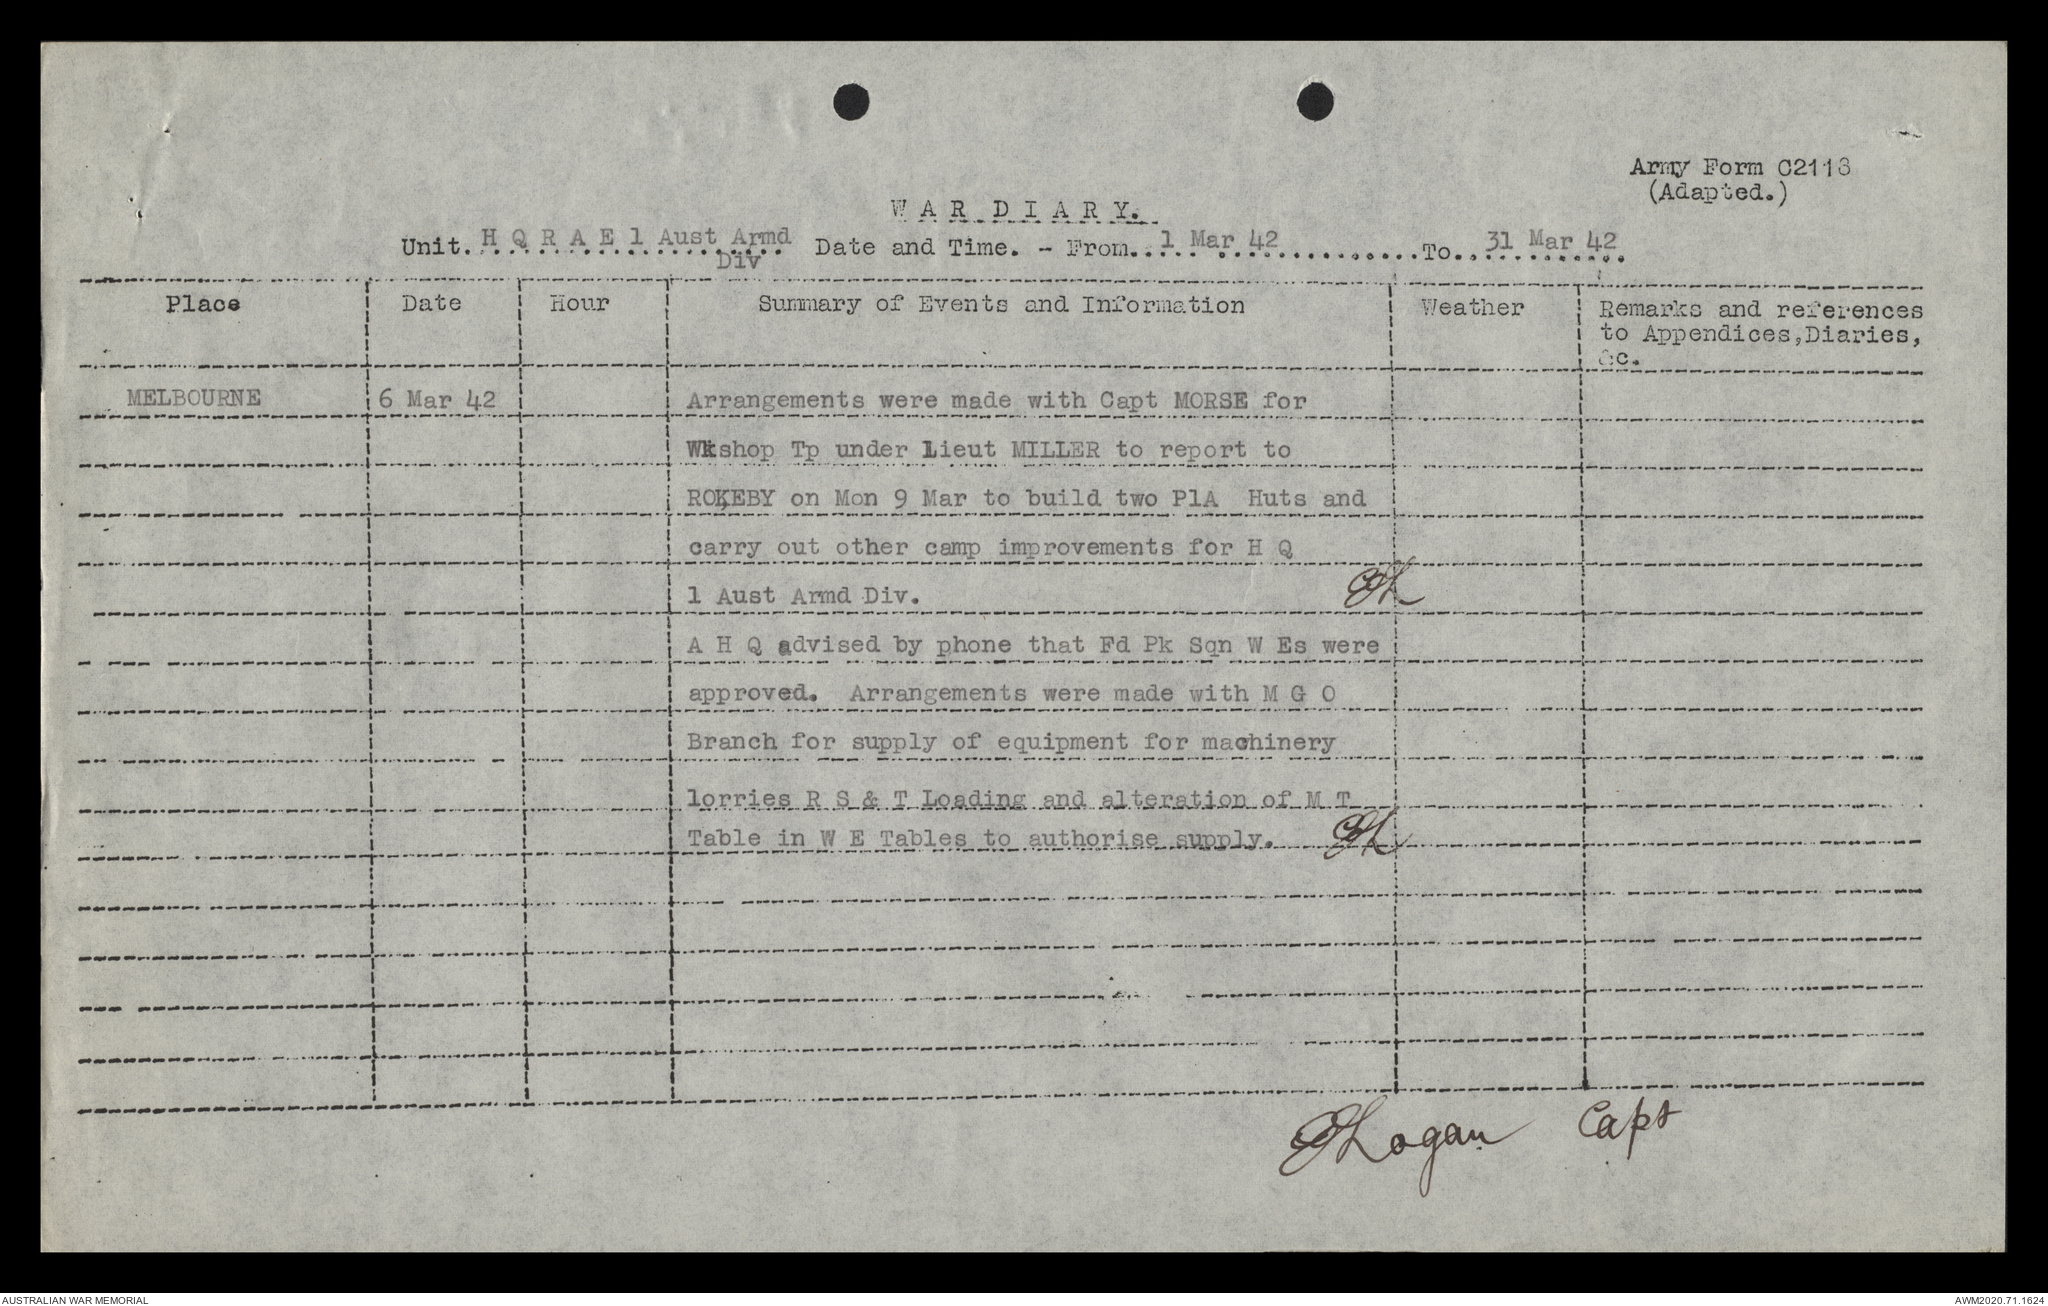 Army Form C2118
(Adapted.)
W A R D I A R Y.
Unit. H Q R A E 1 Aust Armd Div Date and Time. - From. 1 Mar 42 To. 31 Mar 42
Place Date Hour Summary of Events and Information Weather Remarks and references
to Appendices,Diaries,
&c.
MELBOURNE 6 Mar 42 Arrangements were made with Capt MORSE for
Wkshop Tp under Lieut MILLER to report to
ROKEBY on Mon 9 Mar to build two P1A Huts and
carry out other camp improvements for H Q
1 Aust Armd Div.
A H Q advised by phone that Fd Pk Sqn W Es were
approved. Arrangements were made with M G O
Branch for supply of equipment for machinery
lorries R S & T Loading and alteration of M T
Table in W E Tables to authorise supply.
Logan Capt
AUSTRALIAN WAR MEMORIAL AWM2020.71.1624